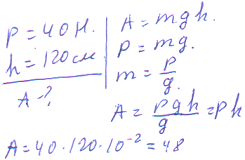 P = 40 Н.
h = 120 см
A - ?
A = mgh.
P = mg.
m = P/g.
A = Pgh/g = Ph
A = 40·120·10⁻² = 48